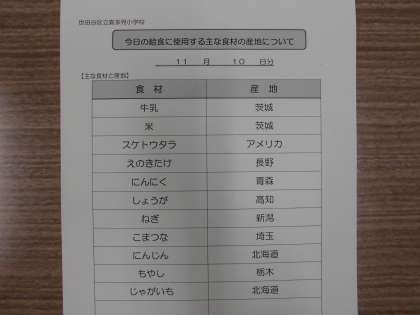 世田谷区立喜多見小学校
今日の給食に使用する主な食材の産地について
11 月 10 日分
【主な食材と産地】
食 材 産 地
牛乳 茨城
米 茨城
スケトウタラ アメリカ
えのきたけ 長野
にんにく 青森
しょうが 高知
ねぎ 新潟
こまつな 埼玉
にんじん 北海道
もやし 栃木
じゃがいも 北海道